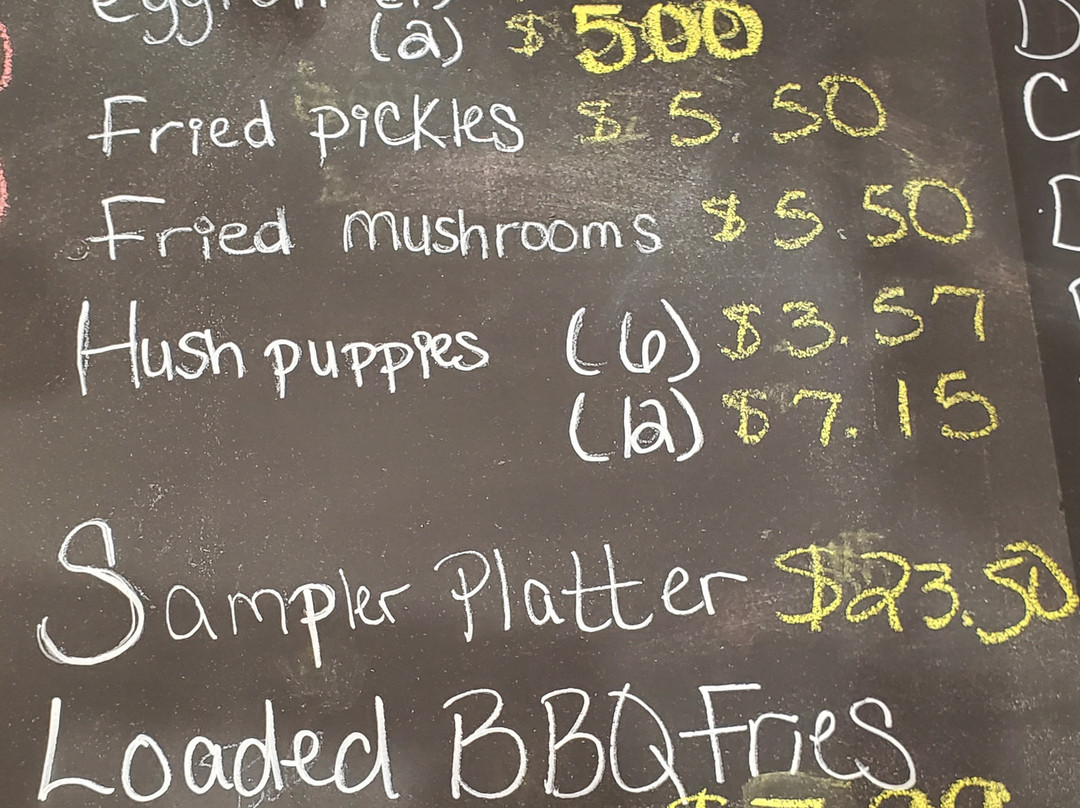 eggroll (1)
(2) $5.00
Fried pickles $5.50
Fried mushrooms $5.50
Hush puppies (6) $3.57
(12) $7.15
Sampler Platter $23.50
Loaded BBQ Fries